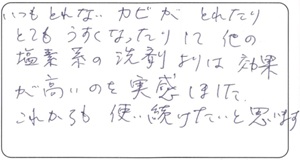 いつもとれないカビがとれたり
とてもうすくなったりして他の
塩素系の洗剤よりは効果
が高いのを実感しました。
これからも使い続けたいと思います